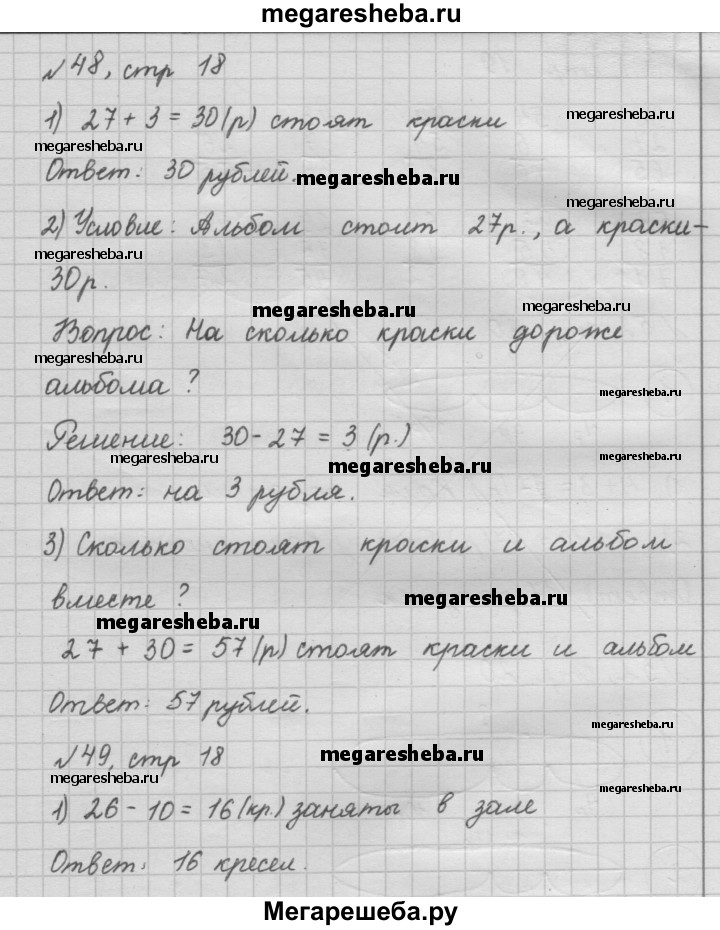 megaresheba.ru
№48, стр 18
1) 27 + 3 = 30 (р) стоят краски
megaresheba.ru
megaresheba.ru
Ответ: 30 рублей.
megaresheba.ru
megaresheba.ru
2) Условие: Альбом стоит 27р., а краски-
megaresheba.ru
30р.
megaresheba.ru
megaresheba.ru
Вопрос: На сколько краски дороже
megaresheba.ru
альбома ?
megaresheba.ru
Решение: 30 - 27 = 3 (р.)
megaresheba.ru
megaresheba.ru
Ответ: на 3 рубля.
3) Сколько стоят краски и альбом
вместе ?
megaresheba.ru
megaresheba.ru
27 + 30 = 57 (р) стоят краски и альбом
Ответ: 57 рублей.
megaresheba.ru
№49, стр 18
megaresheba.ru
megaresheba.ru
1) 26 - 10 = 16 (кр.) заняты в зале
Ответ: 16 кресел.
Мегарешеба.ру